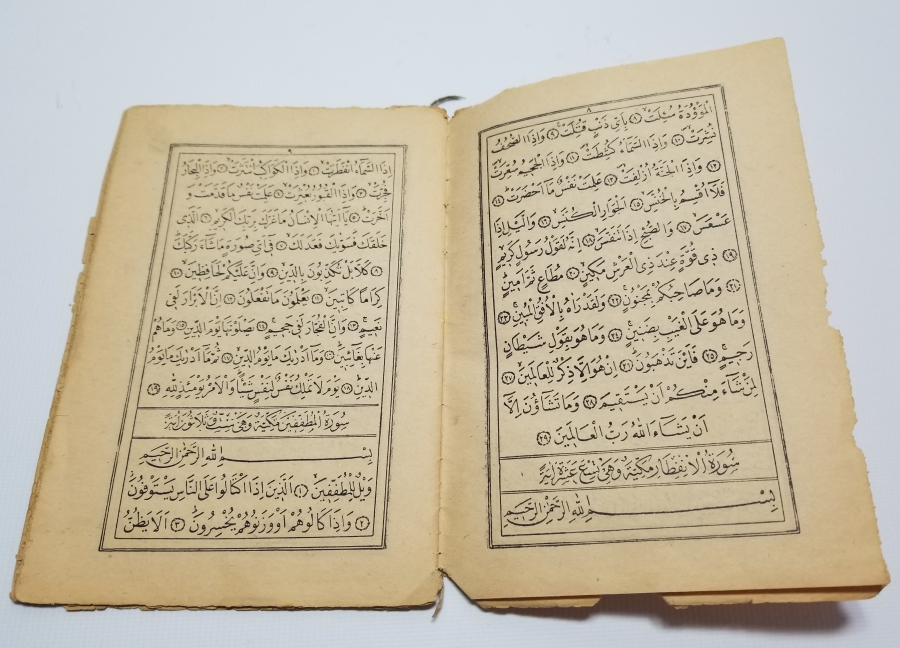 ٨
الْمَوْؤُدَةُ سُئِلَتْ ٨ بِاَىِّ ذَنْبٍ قُتِلَتْ ٩ وَاِذَا الصُّحُفُ
نُشِرَتْ ١٠ وَاِذَا السَّمَاءُ كُشِطَتْ ١١ وَاِذَا الْجَحِيمُ سُعِّرَتْ
١٢ وَاِذَا الْجَنَّةُ اُزْلِفَتْ ١٣ عَلِمَتْ نَفْسٌ مَا اَحْضَرَتْ ١٤
فَلَا اُقْسِمُ بِالْخُنَّسِ ١٥ اَلْجَوَارِ الْكُنَّسِ ١٦ وَالَّيْلِ اِذَا
عَسْعَسَ ١٧ وَالصُّبْحِ اِذَا تَنَفَّسَ ١٨ اِنَّهُ لَقَوْلُ رَسُولٍ كَرِيمٍ
١٩ ذِى قُوَّةٍ عِنْدَ ذِى الْعَرْشِ مَكِينٍ ٢٠ مُطَاعٍ ثَمَّ اَمِينٍ
٢١ وَمَا صَاحِبُكُمْ بِمَجْنُونٍ ٢٢ وَلَقَدْ رَاٰهُ بِالْاُفُقِ الْمُبِينِ ٢٣
وَمَا هُوَ عَلَى الْغَيْبِ بِضَنِينٍ ٢٤ وَمَا هُوَ بِقَوْلِ شَيْطَانٍ
رَجِيمٍ ٢٥ فَاَيْنَ تَذْهَبُونَ ٢٦ اِنْ هُوَ اِلَّا ذِكْرٌ لِلْعَالَمِينَ ٢٧
لِمَنْ شَاءَ مِنْكُمْ اَنْ يَسْتَقِيمَ ٢٨ وَمَا تَشَاؤُنَ اِلَّا
اَنْ يَشَاءَ اللّٰهُ رَبُّ الْعَالَمِينَ ٢٩
سُورَةُ الْاِنْفِطَارِ مَكِّيَّةٌ وَهِىَ تِسْعَ عَشْرَةَ اٰيَةً
بِسْمِ اللّٰهِ الرَّحْمٰنِ الرَّحِيمِ
٩
اِذَا السَّمَاءُ انْفَطَرَتْ ١ وَاِذَا الْكَوَاكِبُ انْتَثَرَتْ ٢ وَاِذَا الْبِحَارُ
فُجِّرَتْ ٣ وَاِذَا الْقُبُورُ بُعْثِرَتْ ٤ عَلِمَتْ نَفْسٌ مَا قَدَّمَتْ وَ
اَخَّرَتْ ٥ يَا اَيُّهَا الْاِنْسَانُ مَا غَرَّكَ بِرَبِّكَ الْكَرِيمِ ٦ اَلَّذِى
خَلَقَكَ فَسَوّٰيكَ فَعَدَلَكَ ٧ فِى اَىِّ صُورَةٍ مَا شَاءَ رَكَّبَكَ
٨ كَلَّا بَلْ تُكَذِّبُونَ بِالدِّينِ ٩ وَاِنَّ عَلَيْكُمْ لَحَافِظِينَ ١٠
كِرَامًا كَاتِبِينَ ١١ يَعْلَمُونَ مَا تَفْعَلُونَ ١٢ اِنَّ الْاَبْرَارَ لَفِى
نَعِيمٍ ١٣ وَاِنَّ الْفُجَّارَ لَفِى جَحِيمٍ ١٤ يَصْلَوْنَهَا يَوْمَ الدِّينِ ١٥ وَمَا هُمْ
عَنْهَا بِغَائِبِينَ ١٦ وَمَا اَدْرٰيكَ مَا يَوْمُ الدِّينِ ١٧ ثُمَّ مَا اَدْرٰيكَ مَا يَوْمُ
الدِّينِ ١٨ يَوْمَ لَا تَمْلِكُ نَفْسٌ لِنَفْسٍ شَيْئًا وَالْاَمْرُ يَوْمَئِذٍ لِلّٰهِ ١٩
سُورَةُ الْمُطَفِّفِينَ مَكِّيَّةٌ وَهِىَ سِتٌّ وَثَلَاثُونَ اٰيَةً
بِسْمِ اللّٰهِ الرَّحْمٰنِ الرَّحِيمِ
وَيْلٌ لِلْمُطَفِّفِينَ ١ اَلَّذِينَ اِذَا اكْتَالُوا عَلَى النَّاسِ يَسْتَوْفُونَ
٢ وَاِذَا كَالُوهُمْ اَوْ وَزَنُوهُمْ يُخْسِرُونَ ٣ اَلَا يَظُنُّ